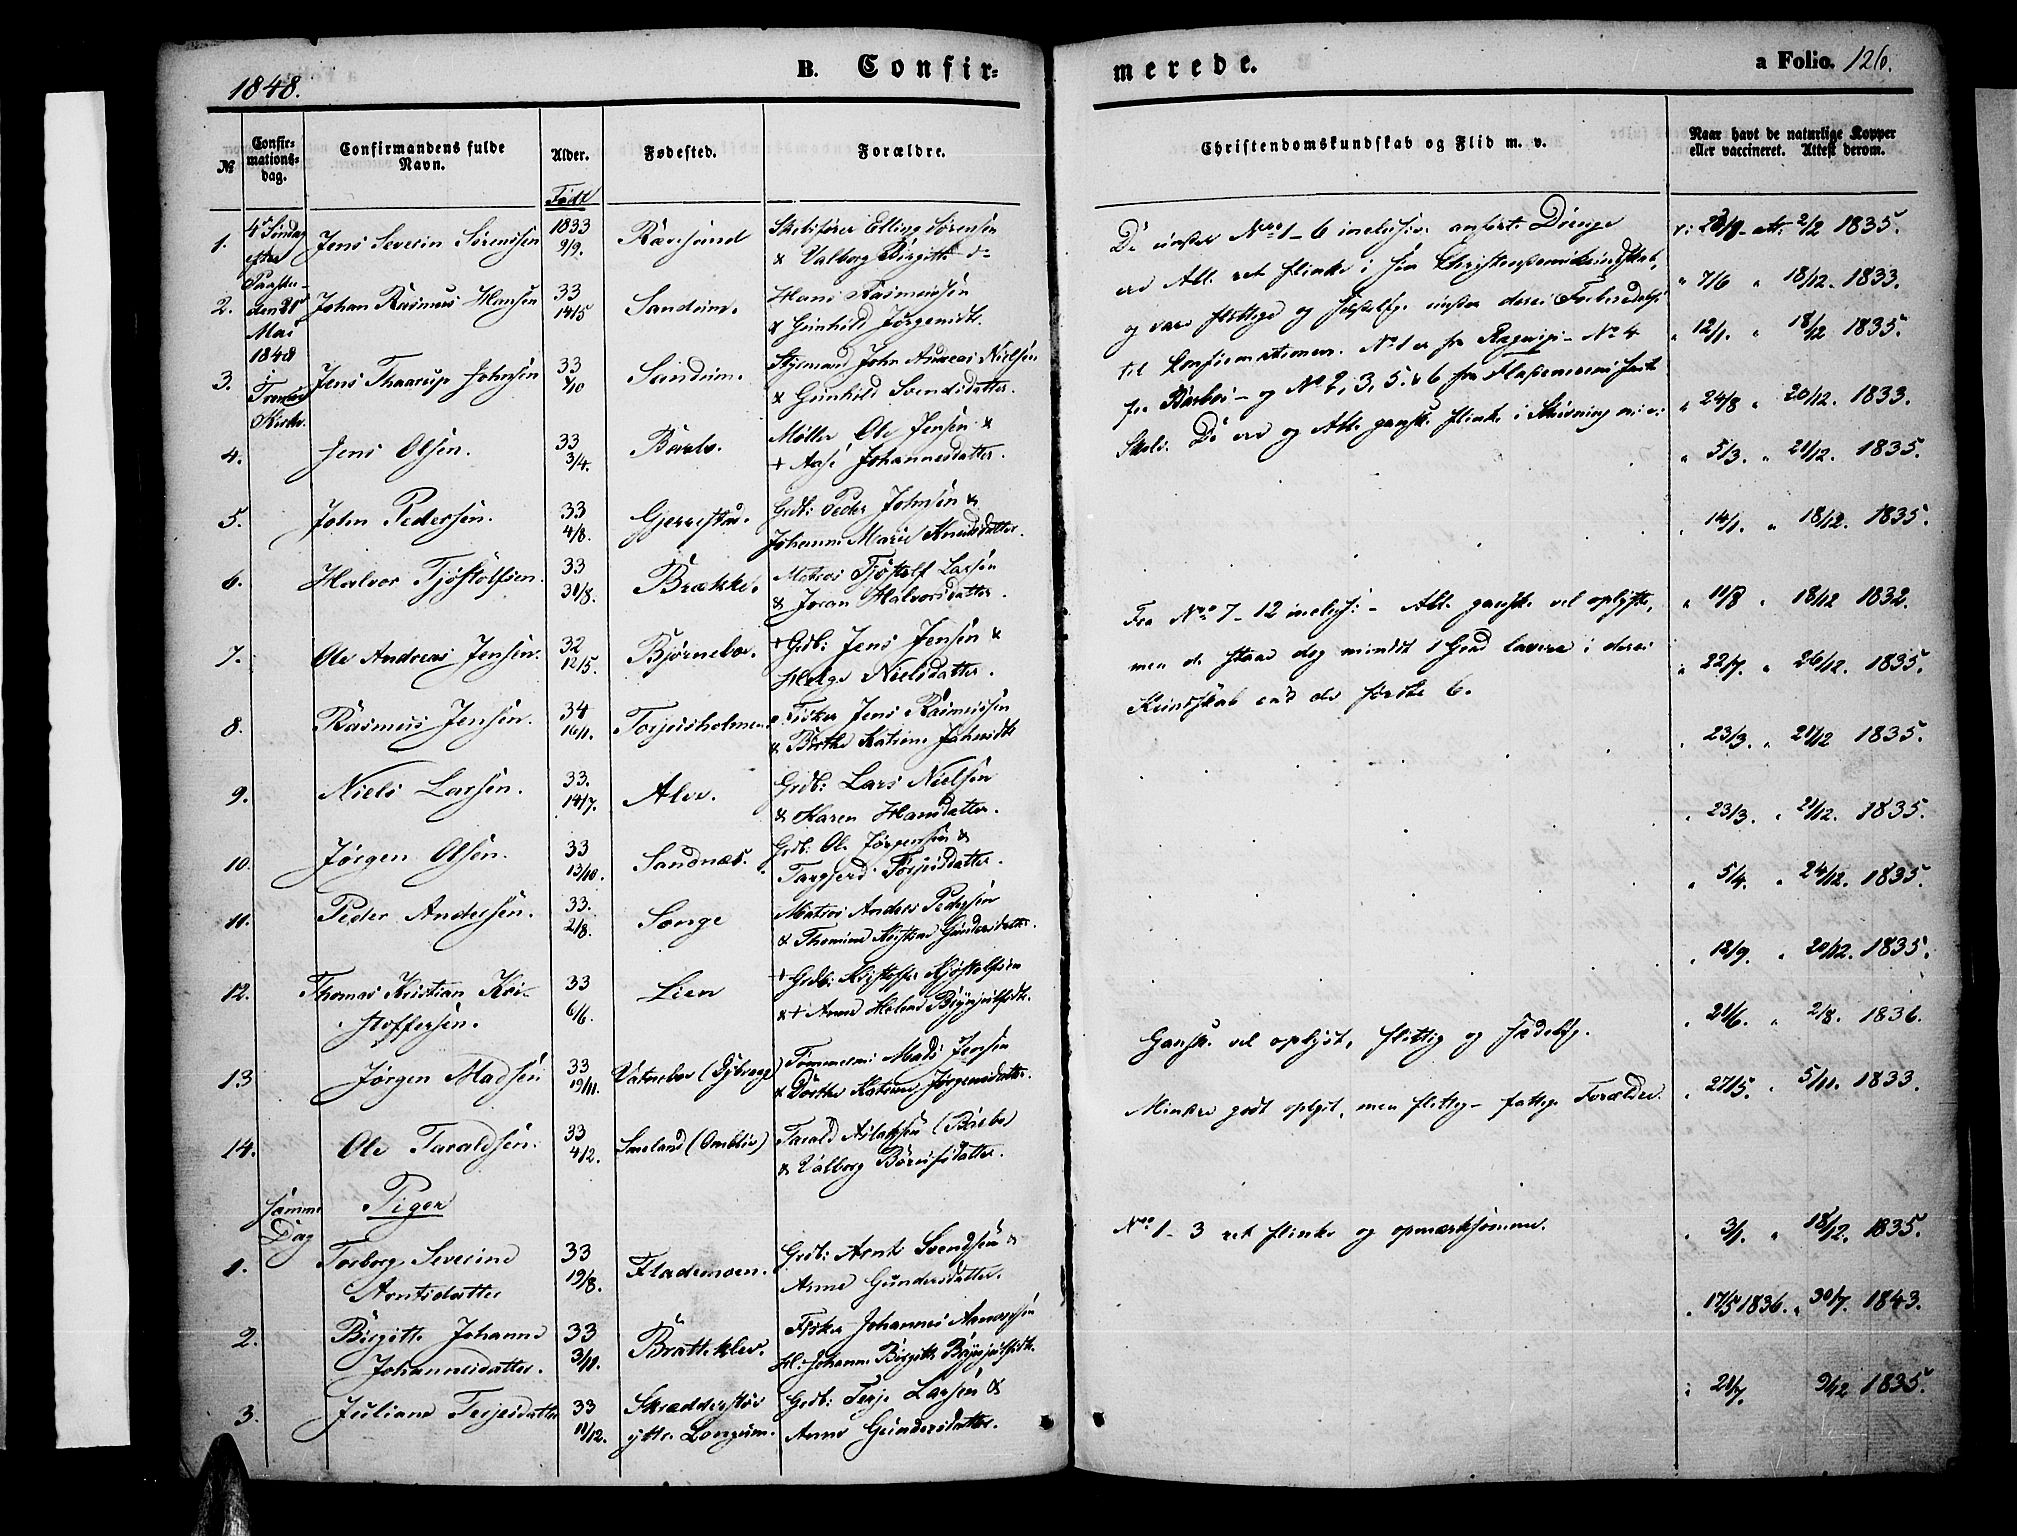 1848.
B. Confir-
merede.
a Folio. 126.
№
Confir-
mations-
dag.
Confirmandens fulde
Navn.
Alder.
Fødested.
Forældre.
Christendomskundskab og Flid m. v.
Naar havt de naturlige Kopper
eller vaccineret. Attest derom.
Født
4de Søndag
efter
Paaske
den 21
Mai
1848
i
Tromø
Kirke.
1. Jens Severin Sørensen 1833 9/9. Rævesand Skibsfører Elling Sørensen
& Valborg Birgitte d-
2. Johan Rasmus Hansen 33 14/5 Sandum. Hans Rasmussen
& Gunhild Jørgensdt.
3. Jens Thaarup Johnsen 33 /10 Sandum. Styrmand John Andreas Nielsen
& Gunhild Svendsdatter.
4. Jens Olsen. 33 3/4. Barbo. Møller Ole Jensen &
+ Aase Johannesdatter.
5. John Pedersen. 33 4/8. Gjerrestad. Grdb: Peder Johnsen &
Johanne Marie
6. Halvor Tjøstolfsen. 33 31/8. Brække. Matros Tjøstolf Larsen
& Joran Halvorsdatter.
7. Ole Andreas Jensen. 32 12/5. Bjørneboe. + Grdb: Jens Jensen &
Helge Nielsdatter.
8. Rasmus Jensen. 34 16/1. Torjusholmen. Fisker Jens Rasmussen
& Birthe Katrine
9. Niels Larsen. 33. 14/7. Alve. Grdb: Lars Nielsen
& Karen Hansdatter.
10. Jørgen Olsen. 33 13/10. Sandnæs. Grdb: Ole Jørgensen &
Targjerd
11. Peder Andersen. 33. 2/8. Songe Matros Anders Pedersen
& Thomine Kristine Gundersdatter.
12. Thomas Kristian Kri-
stoffersen. 33 6/6. Lien + Grdb: Kristoffer Tjøstolfsen
& + Anne Helene Brynjulfsdt.
13 Jørgen Madsen 33 19/11. Vatneboe (Dybvaag) Tømmerm: Mads Jensen
& Dorthe Katrine Jørgensdatter.
14. Ole Taraldsen. 33 4/2. Smeland (Omblie) Tarald Aslaksen (Barbo)
& Valborg
Samme
Dag
Piger
1. Torborg Severine
Arntsdatter 33 19/8. Flademoen. Grdb: Arnt Svendsen &
Anne Gundersdatter.
2. Birgitte Johanne
Johannesdatter. 33 3/11. Bratteklev. Fisker Johannes
Johanne Birgitte Brynjulfsdt.
3. Juliane Terjesdatter 33 11/12. Skrædderstøe
ytre Longum. Grdb: Terje Larsen &
Anne Gundersdatter.
De under Nro 1-6 inclusive anførte Drenge
ere Alle ret flinke i sin Christendomskundskab,
og vare flittige og sædelige under deres Forberedelse
til Confirmationen. No 1 er fra - No 4
fra Barboe - og No 2, 3, 5 & 6 fra Flademoens faste
Skole. De ere og Alle ganske flinke i Skrivning m: v:
Fra Nro 7-12 inclus: - Alle ganske vel oplyste,
men de staae dog mindst 1 Grad lavere i deres
Kundskab end de første 6.
Ganske vel oplyst, flittig og sædelig.
Mindre godt oplyst, men flittig - fattige Forældre.
Nro 1-3 ret flinke og opmærksomme.
v: 23/9 - At: 2/2 1835.
" 7/6 " 18/12. 1833.
" 12/1. " 18/12 1835.
" 24/8 " 20/12. 1833.
" 5/3. " 21/12. 1835.
" 14/1. " 18/12. 1835.
" 11/8 " 18/12 1832.
" 22/7. " 26/12. 1835.
" 23/3. " 21/12 1835.
" 23/3. " 21/12. 1835.
" 5/4. " 24/12. 1835.
" 12/9. " 20/12. 1835.
" 21/6. " 2/8. 1836.
" 27/5. " 5/11. 1833.
" 3/1. " 18/12. 1835.
" 17/5 1836. " 30/7. 1843.
" 21/7. 9/12 1835.